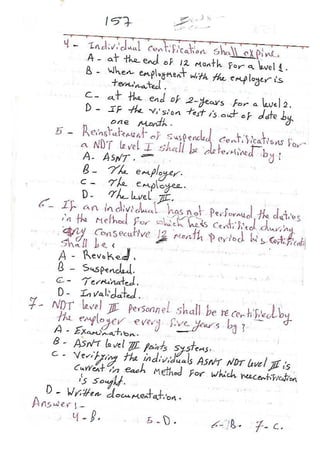 157
4 - Individual certification shall expire.
A - at the end of 12 month for a level 1.
B - When employment with the employer is
terminated.
C - at the end of 2-years for a level 2.
D - If the vision test is out of date by
one month.
5 - Reinstatement of suspended certifications for
a NDT level I shall be determined by:
A - ASNT.
B - The employer.
C - The employee.
D - The level III.
6 - If an individual has not performed the duties
in the method for which he is certified during
any consecutive 12 month period his certificat
shall be:
A - Revoked.
B - Suspended.
C - Terminated.
D - Invalidated.
7 - NDT level III personnel shall be recertified by
the employer every five years by?
A - Examination.
B - ASNT level III points systems.
C - Verifying the individuals ASNT NDT level III is
current in each method for which recertification
is sought.
D - Written documentation.
Answer:-
4-B. 5-D. 6-B. 7-C.